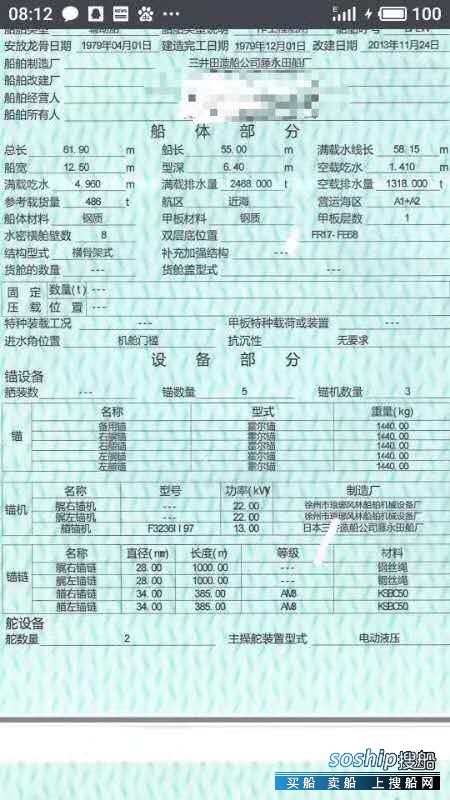 08:12 100
安放龙骨日期 1979年04月01日 建造完工日期 1979年12月01日 改建日期 2013年11月24日
船舶制造厂 三井田造船公司藤永田船厂
船舶改建厂
船舶经营人
船舶所有人
船 体 部 分
总长 61.90 m 船长 55.00 m 满载水线长 58.15 m
船宽 12.50 m 型深 6.40 m 空载吃水 1.410 m
满载吃水 4.960 m 满载排水量 2468.000 t 空载排水量 1318.000 t
参考载货量 486 t 航区 近海 营运海区 A1+A2
船体材料 钢质 甲板材料 钢质 甲板层数 1
水密横舱壁数 8 双层底位置 FR17-FE68
结构型式 横骨架式 补充加强结构 ---
货舱的数量 --- 货舱盖型式 ---
固定 数量(t) ---
压载 位置 ---
特种装载工况 --- 甲板特种载荷或装置 ---
进水角位置 机舱门槛 抗沉性 无要求
设 备 部 分
锚设备
舾装数 --- 锚数量 5 锚机数量 3
名称 型式 重量(kg)
锚
备用锚 霍尔锚 1440.00
右艉锚 霍尔锚 1440.00
右艏锚 霍尔锚 1440.00
左艉锚 霍尔锚 1440.00
左艏锚 霍尔锚 1440.00
名称 型号 功率(kW) 制造厂
锚机
艉右锚机 --- 22.00 徐州市琅琊风林船舶机械设备厂
艉左锚机 --- 22.00 徐州市琅琊风林船舶机械设备厂
艏锚机 F3236I197 13.00 日本三 造船公司藤永田船厂
名称 直径(mm) 长度(m) 等级 材料
锚链
艉右锚链 28.00 1000.00 --- 钢丝绳
艉左锚链 28.00 1000.00 --- 钢丝绳
艏右锚链 34.00 385.00 AM3 KSBC50
艏左锚链 34.00 385.00 AM3 KSBC50
舵设备
舵数量 2 主操舵装置型式 电动液压
soship搜船
买船 卖船 上搜船网